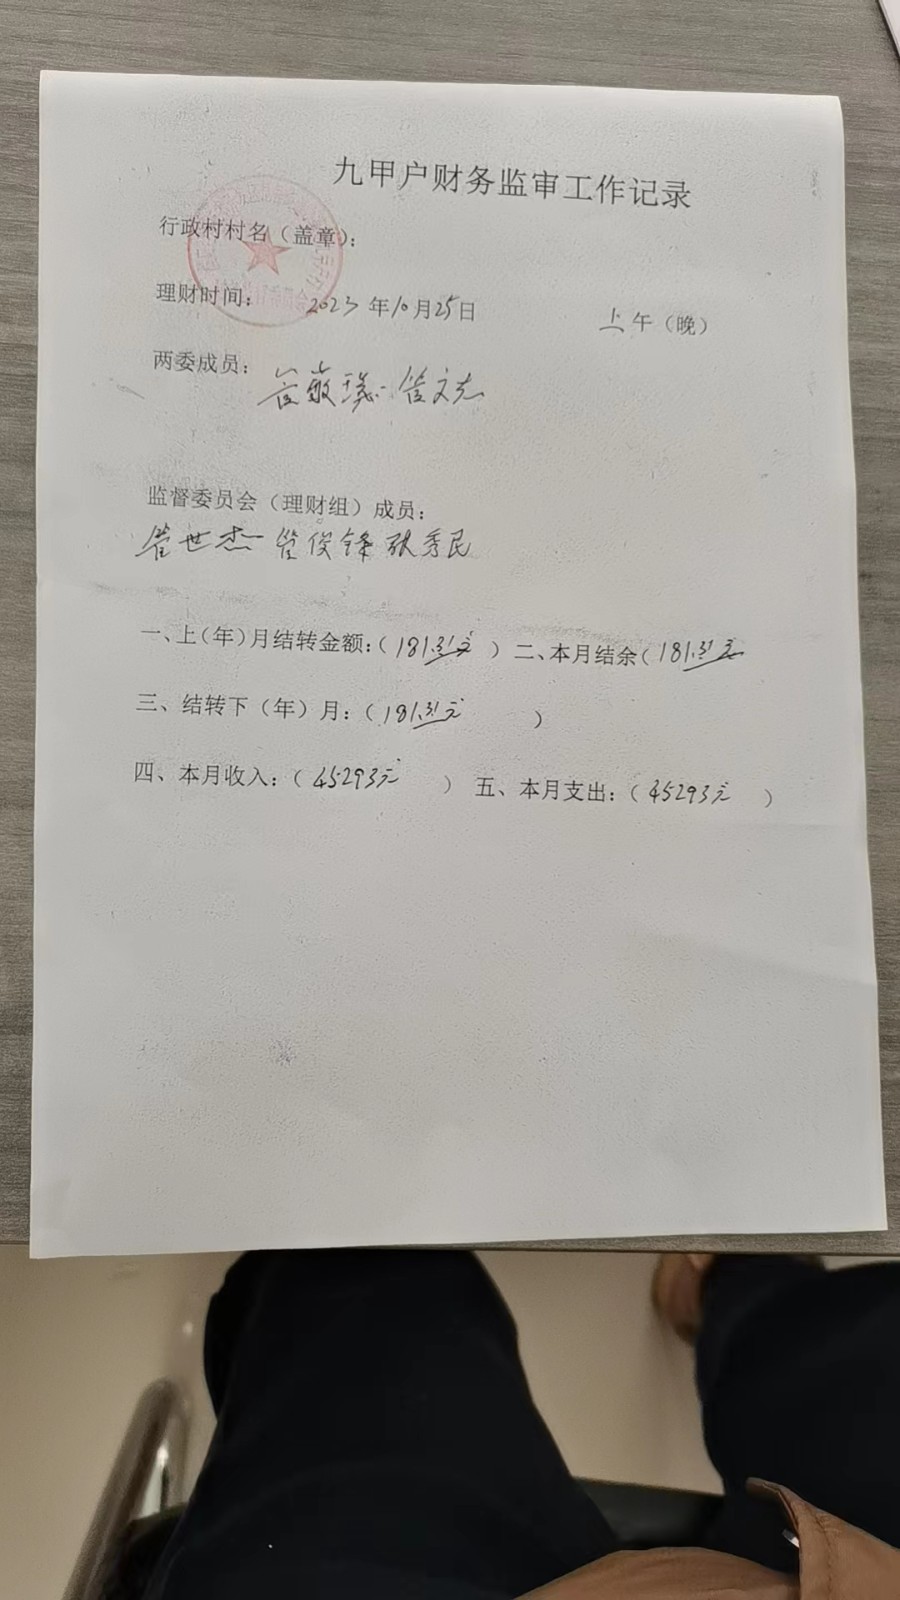 九甲户财务监审工作记录
行政村村名（盖章）：
理财时间： 2023年10月25日 上午（晚）
两委成员： 管敏 管文志
监督委员会（理财组）成员：
管世杰 管俊锋 张秀民
一、上（年）月结转金额：（181.31元） 二、本月结余（181.31元
三、结转下（年）月：（181.31元 ）
四、本月收入：（45293元 ） 五、本月支出：（45293元 ）